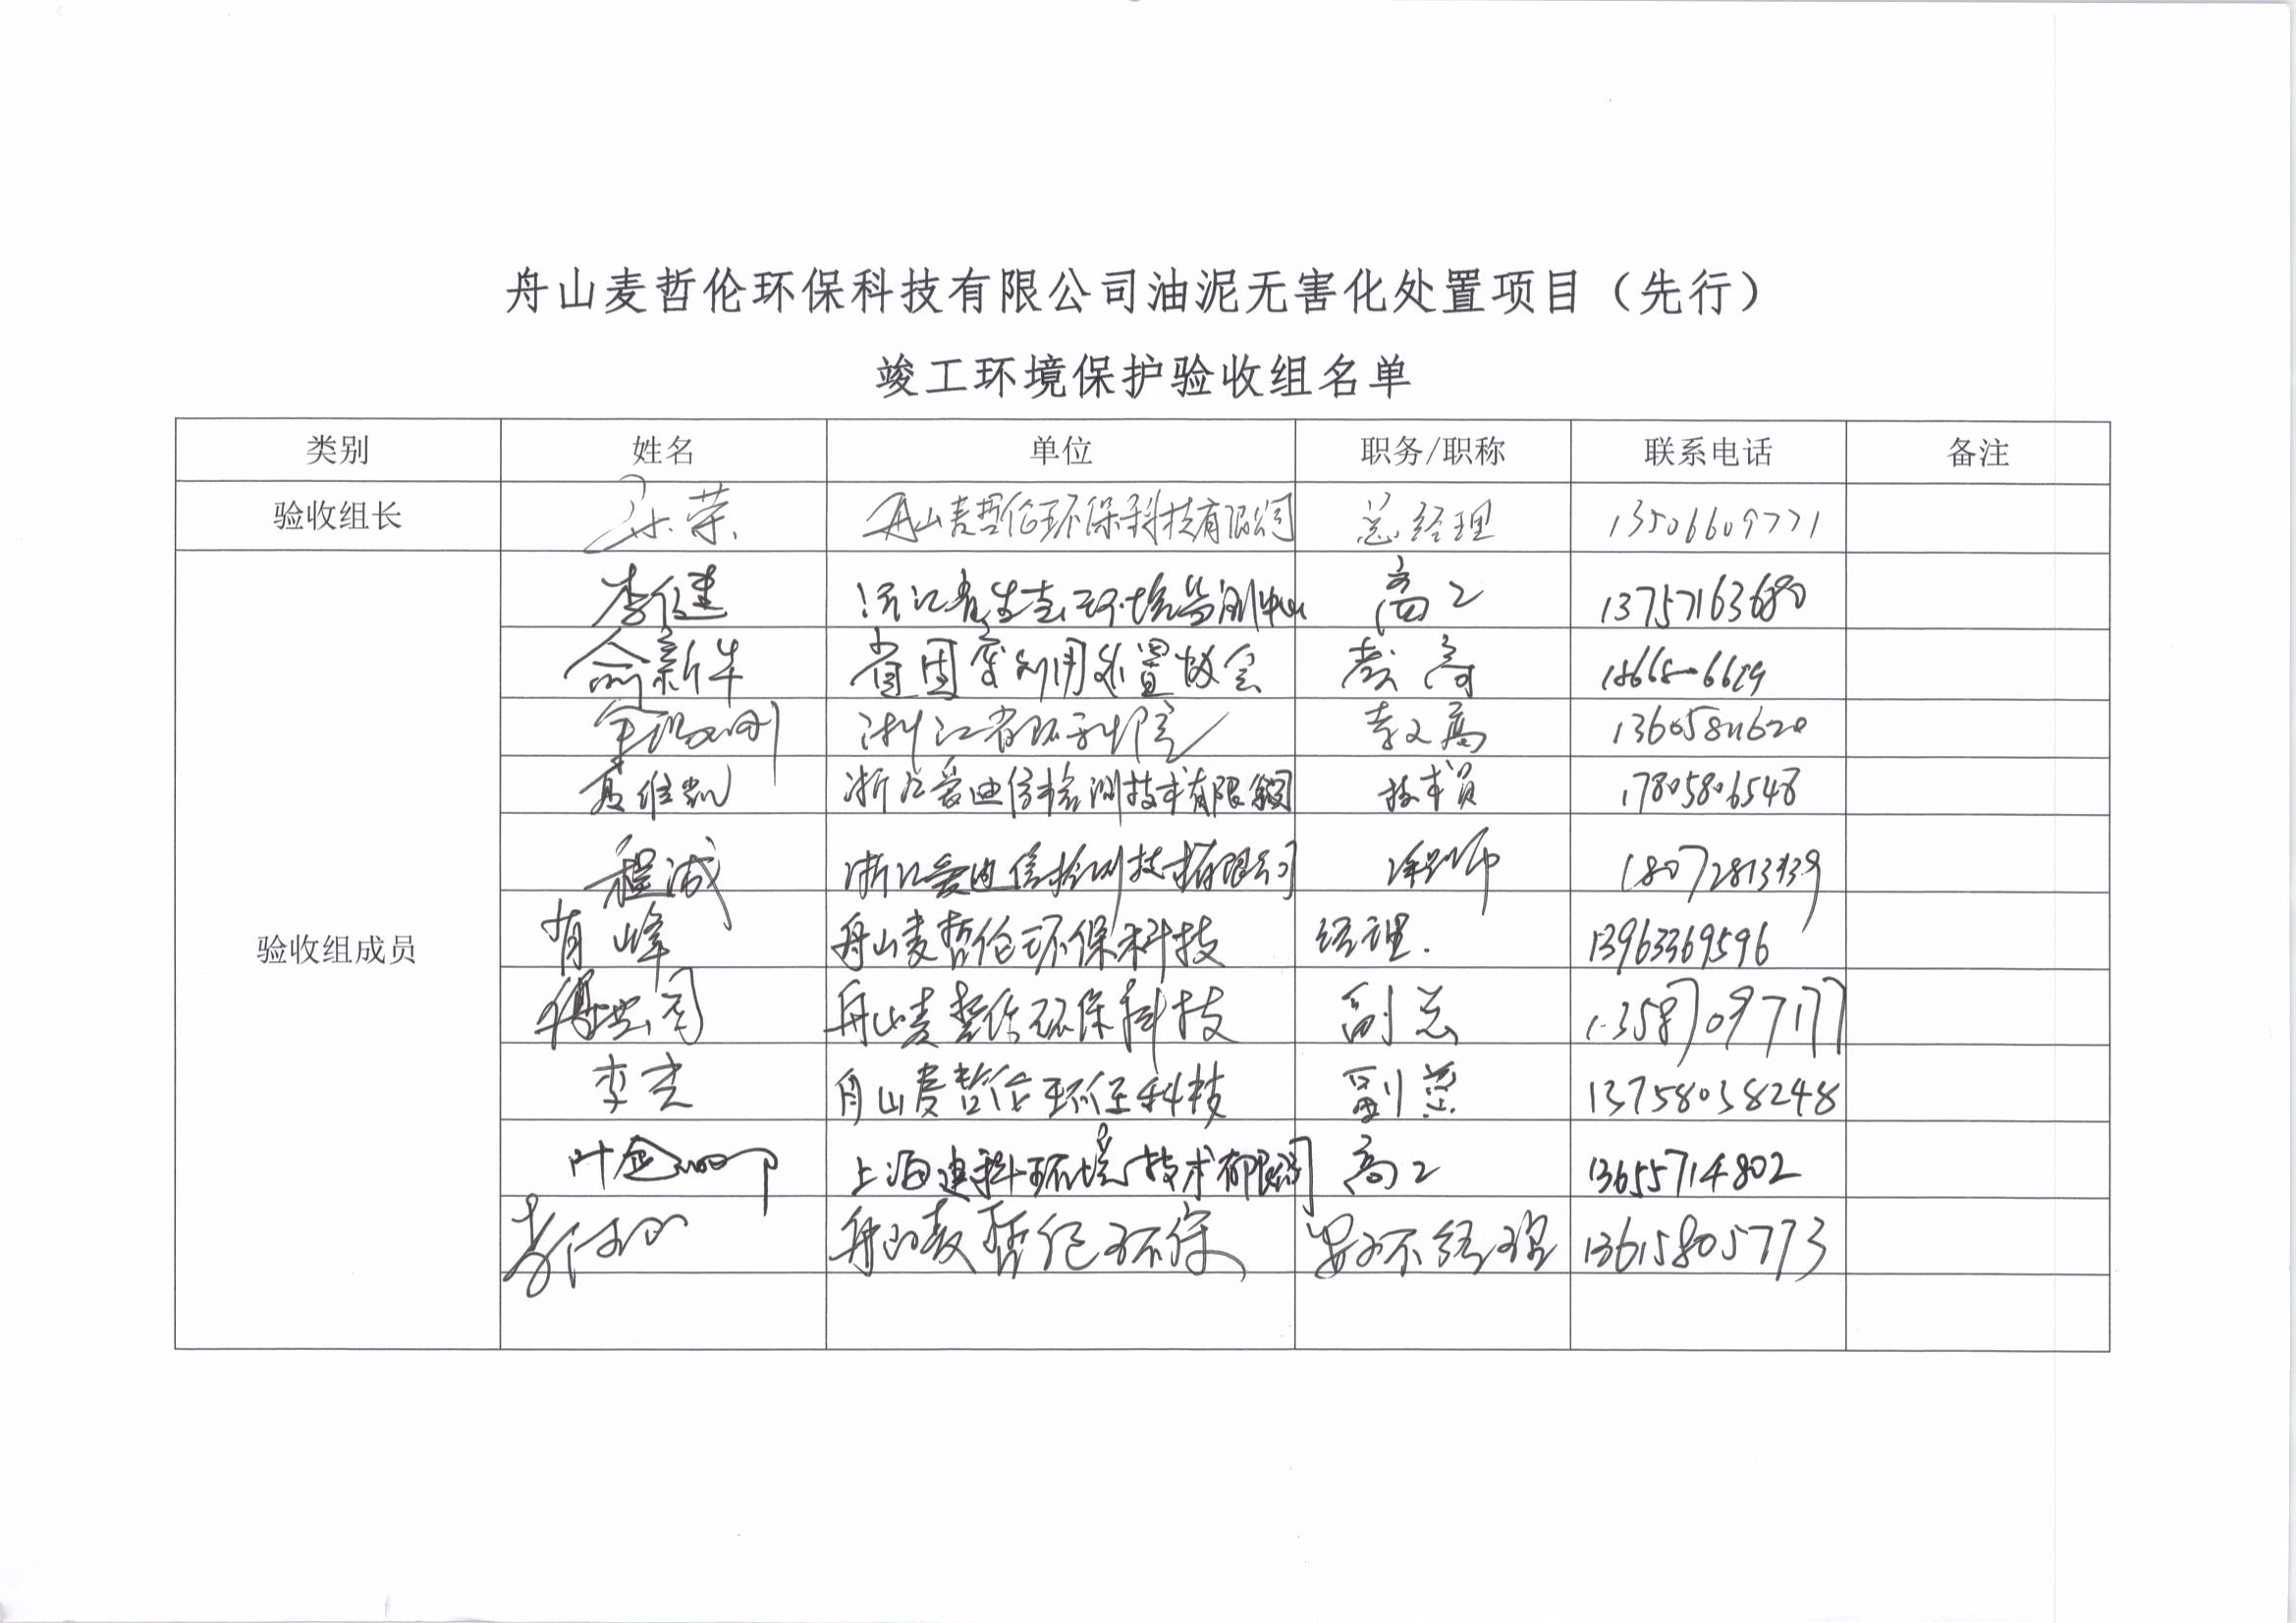 舟山麦哲伦环保科技有限公司油泥无害化处置项目（先行）
竣工环境保护验收组名单
类别 姓名 单位 职务/职称 联系电话 备注
验收组长 孙荣 舟山麦哲伦环保科技有限公司 总经理 13506609771
李健 浙江省生态环境监测中心 高工 13757163680
俞新 省固废利用处置协会 教高
浙江省环科院 教高
夏维凯 浙江爱迪信检测技术有限公司 技术员 17805806548
程波 浙江爱迪信检测技术有限公司
验收组成员 肖峰 舟山麦哲伦环保科技 经理. 13963369596
舟山麦哲伦环保科技 副总 13587097177
李杰 舟山麦哲伦环保科技 副总 13758038248
叶 上海建科环境技术有限公司 高工 13655714802
李 舟山麦哲伦环保 安环经理 13615805773